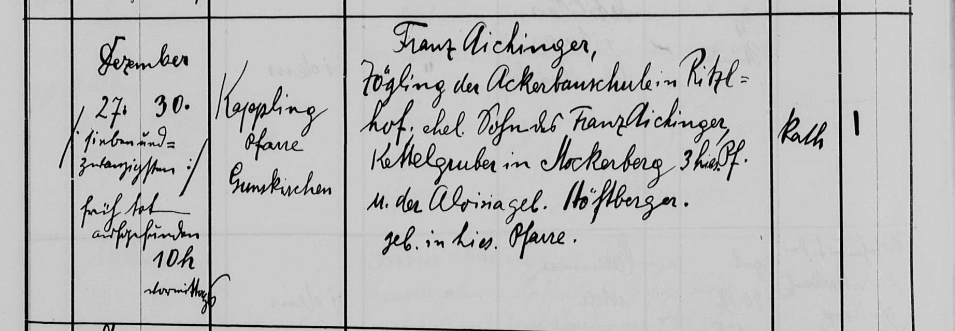 Dezember
27. 30.
/: siebenund=
zwanzigsten :/
früh tot
aufgefunden
10h
vormittags
Kappling
Pfarre
Gunskirchen
Franz Aichinger,
Zögling der Ackerbauschule in Ritzl=
hof, ehel. Sohn des Franz Aichinger,
in Mockerberg 3 hies. Pf.
u. der Aloisia geb. Höftberger.
geb. in hies. Pfarre.
Kath
1